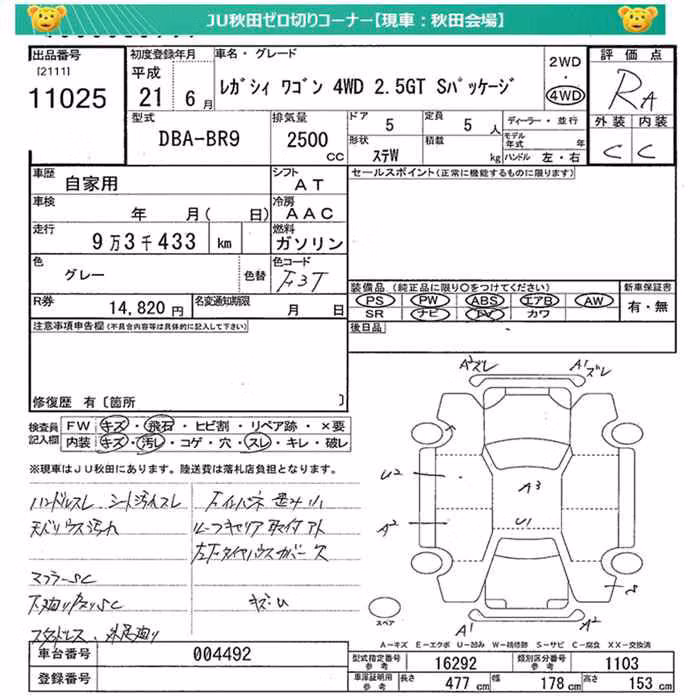 JU秋田ゼロ切りコーナー【現車：秋田会場】
出品番号
[2111]
11025
初度登録年月
平成
21 6月
車名・グレード
レガシィ ワゴン 4WD 2.5GT Sパッケージ
2WD
・
4WD
評価点
RA
外装 内装
C C
型式
DBA-BR9
排気量
2500
CC
ドア
5
定員
5人
形状
ステW
積載
kg
ディーラー・並行
モデル年式 年
ハンドル 左・右
車歴
自家用
シフト
AT
車検
年 月( 日)
冷房
AAC
走行
9万3千433 km
燃料
ガソリン
色
グレー
色替
色コード
F3T
R券
14,820円
名変通知期限
月 日
セールスポイント(正常に機能するものに限ります)
装備品 (純正品に限り○をつけてください)
PS PW ABS エアB AW
SR ナビ TV カワ
新車保証書
有・無
後日品
注意事項申告欄(不具合内容等は具体的に記入して下さい)
修復歴 有〔箇所 〕
検査員
記入欄
FW キズ・飛石・ヒビ割・リペア跡・×要
内装 キズ・汚レ・コゲ・穴・スレ・キレ・破レ
※現車はJU秋田にあります。陸送費は落札店負担となります。
ハンドルスレ シート汚レスレ
天バリウス汚れ
マフラーSC
下廻りサビSC
ルーフキャリア取付アト
左下タイヤハウスカバー欠
キズU
A2ズレ
A1ズレ
U2
A2
A3
U1
S
A1
A2
スペア
A－キズ E－エクボ U－凹み W－補修跡 S－サビ C－腐食 XX－交換済
車台番号
004492
登録番号
型式指定番号
参考
16292
類別区分番号
参考
1103
車庫証明用
参考
長さ 477cm 幅 178cm 高さ 153cm